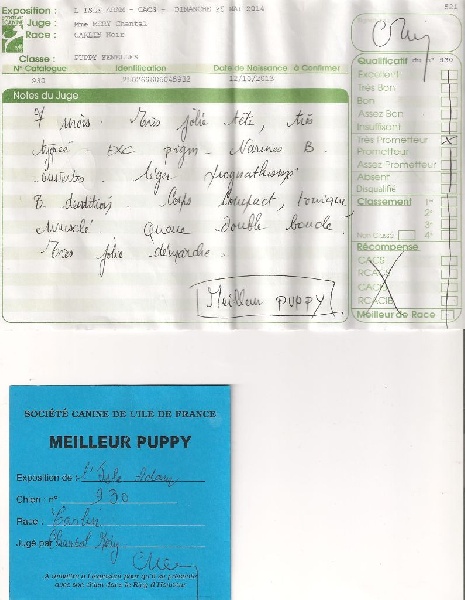 521
Exposition : L'ISLE ADAM - CACS - DIMANCHE 25 MAI 2014
Juge : Mme MERY Chantal
Race : CARLIN Noir
Classe : PUPPY FEMELLES
N° Catalogue Identification Date de Naissance à Confirmer
930 12/10/2013
Notes du Juge
7 mois. Très jolie tête, très
typée - exc pigm - Narines B.
ouvertes léger prognathisme
B dentition Corps compact, tonique,
Musclé Queue double boucle.
Très jolie démarche.
Meilleur PUPPY
Qualificatif du n° 930
Excellent
Très Bon
Bon
Assez Bon
Insuffisant
Très Prometteur X
Prometteur
Assez Prometteur
Absent
Disqualifié
Classement 1er
2e
3e
Non Classé 4e
Récompense
CACS
RCACS
CACIB
RCACIB
Meilleur de Race
SOCIÉTÉ CANINE DE L'ILE DE FRANCE
MEILLEUR PUPPY
Exposition de : L'Isle Adam
Chien n° 930
Race : Carlin
Jugé par Chantal Mery